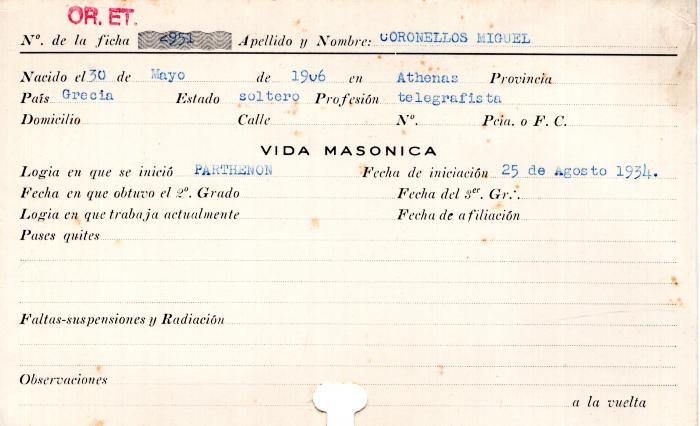 OR. ET.
Nº. de la ficha 2951 Apellido y Nombre: CORONELLOS MIGUEL
Nacido el 30 de Mayo de 1906 en Athenas Provincia
País Grecia Estado soltero Profesión telegrafista
Domicilio Calle Nº. Pcia. o F. C.
VIDA MASONICA
Logia en que se inició PARTHENON Fecha de iniciación 25 de Agosto 1934.
Fecha en que obtuvo el 2º. Grado Fecha del 3er. Gr∴.
Logia en que trabaja actualmente Fecha de afiliación
Pases quites
Faltas-suspensiones y Radiación
Observaciones
a la vuelta